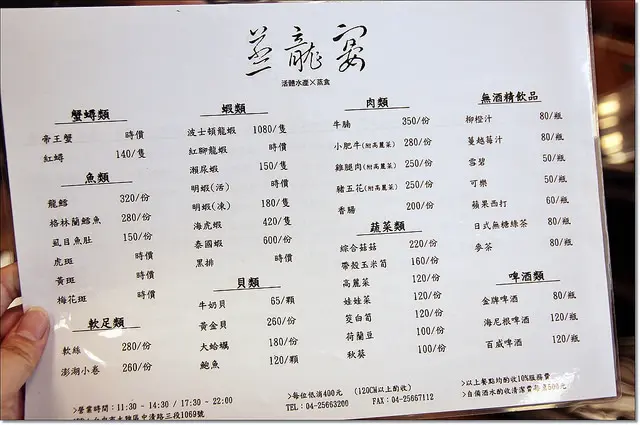 蒸龍宴
活體水產×蒸食
蟹蟳類
帝王蟹 時價
紅蟳 140/隻
魚類
龍鱈 320/份
格林蘭鱈魚 280/份
虱目魚肚 150/份
虎斑 時價
黃斑 時價
梅花斑 時價
軟足類
軟絲 280/份
澎湖小卷 260/份
蝦類
波士頓龍蝦 1080/隻
紅聊龍蝦 時價
瀨尿蝦 150/隻
明蝦(活) 時價
明蝦(凍) 180/隻
海虎蝦 420/隻
泰國蝦 600/份
黑排 時價
貝類
牛奶貝 65/顆
黃金貝 260/份
大蛤蠣 180/份
鮑魚 120/顆
肉類
牛腩 350/份
小肥牛(附高麗菜) 280/份
雞腿肉(附高麗菜) 250/份
豬五花(附高麗菜) 250/份
香腸 200/份
蔬菜類
綜合菇菇 220/份
帶殼玉米筍 160/份
高麗菜 120/份
娃娃菜 120/份
筊白筍 120/份
荷蘭豆 100/份
秋葵 100/份
無酒精飲品
柳橙汁 80/瓶
蔓越莓汁 80/瓶
雪碧 50/瓶
可樂 50/瓶
蘋果西打 60/瓶
日式無糖綠茶 80/瓶
麥茶 80/瓶
啤酒類
金牌啤酒 80/瓶
海尼根啤酒 120/瓶
百威啤酒 120/瓶
>營業時間：11:30 - 14:30 / 17:30 - 22:00
中清路三段1069號
>每位低消400元 (120CM以上酌收)
TEL：04-25663200 FAX：04-25667112
>以上餐點均酌收10%服務費
>自備酒水酌收清潔費每瓶500元